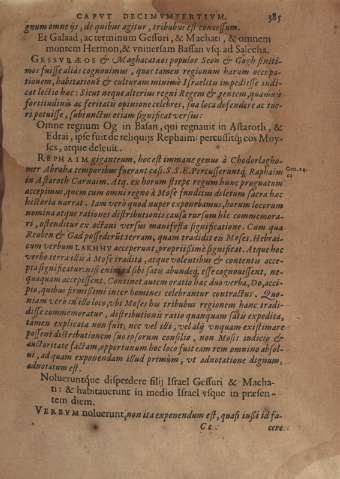 CAPVT DECIMVMTERTIVM. 385
gnum omne ijs, de quibus agitur, tribubus est concessum.
Et Galaad, ac terminum Gessuri, & Machati, & omnem
montem Hermon, & vniuersam Bassan vsq. ad Salecha.
GESSVRÆOS & Maghacataos populos Seon & Gogh finiti-
mos fuisse alias cognouimus, quos tamen regionum harum occupa-
tionem, habitationē & culturam minimè Israëlitis impedisse indi-
cat lectio hac: Sicut neque alterius regni Regem & gentem, quamuis
fortitudinis ac feritatis opinione celebres, sua loca defendere ac tue-
ri potuisse, subiunctus etiam significat versus:
Omne regnum Og in Basan, qui regnauit in Astaroth, &
Edrai, ipse fuit de reliquijs Rephaim: percussitq; eos Moy-
ses, atque deleuit.
REPHAIM gigantrum, hoc est immane genus à Chedorlaghо-
mer Abraha temporibus fuerant casi. S. S. E. Percusserantq; Raphaim Gen. 14.
in Astaroth Carnaim. Atq. ex horum stirpe regem hunc prognatum
accepimus, quem cum omni regno à Mose funditus deletum sacra hac
historia narrat. Iam verò quod nuper exponebamus, horum locorum
nomina atque rationes distributionis causa rursum hîc commemora-
ri, ostenditur ex octaui versus manifesta significatione. Cum qua
Reuben & Gad possederūt terram, quam tradidit eis Moses. Hebrai-
cum verbum LAKEHV acceperunt, propriissimè significat. Atque hoc
verbo terra illis à Mose tradita, atque volentibus & contentis acce-
pta significatur: nisi enim id sibi satis abundeq. esse cognouissent, ne-
quaquam accepissent. Continet autem oratio hac duo verba, Do, acci-
pio, quibus firmissimi inter homines celebrantur contractus. Quo-
niam verò in isto loco, vbi Moses his tribubus regionem hanc tradi-
disse commemoratur, distributionis ratio quanquam satis expedita,
tamen explicata non fuit; nec vel isti, vel alij vnquam existimare
possent distributionem suopte eorum consilio, non Mosis iudicio &
auctoritate factam, opportunum hoc loco fuit eam rem omnino absol-
ui, ad quam exponendam illud primùm, vt adnotatione dignum,
adnotatum est.
Nolueruntque disperdere filij Israel Gessuri & Macha-
ti: & habitauerunt in medio Israel vsque in præsen-
tem diem.
VERBVM noluerunt, non ita exponendum est, quasi iussi id fa-
Cc. cere